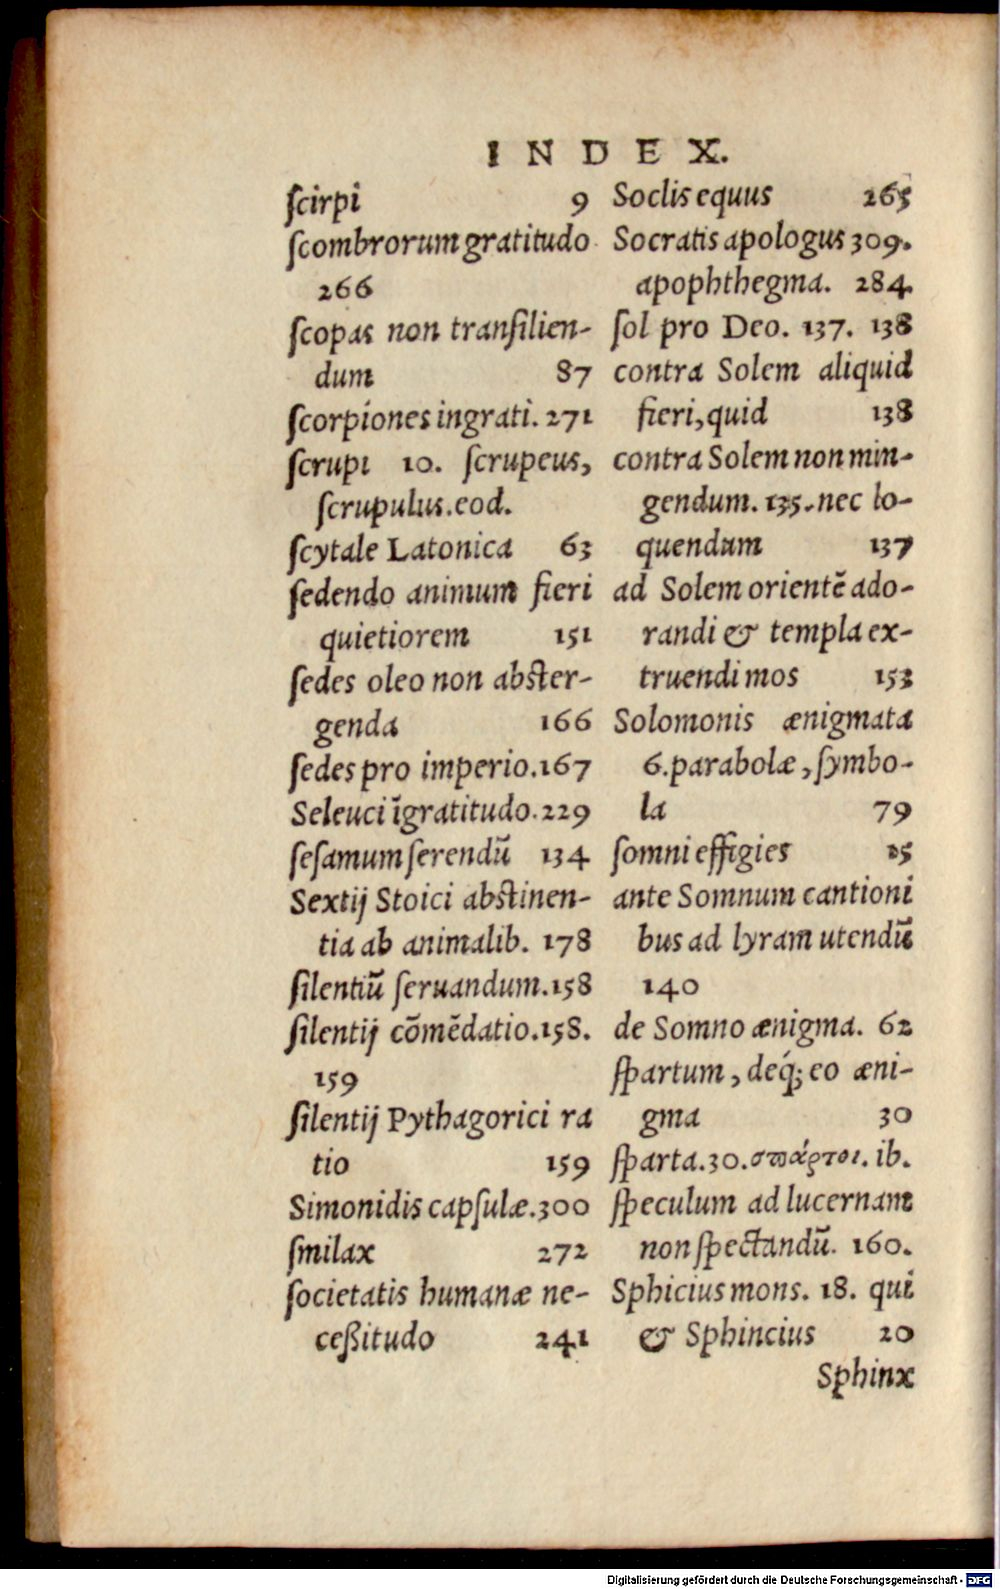 INDEX.
ſcirpi 9
ſcombrorum gratitudo
266
ſcopas non tranſilien-
dum 87
ſcorpiones ingrati. 271
ſcrupi 10. ſcrupeus,
ſcrupulus. eod.
ſcytale Latonica 63
ſedendo animum fieri
quietiorem 151
ſedes oleo non abſter-
genda 166
ſedes pro imperio. 167
Seleuci ĩgratitudo. 229
ſeſamum ſerendũ 134
Sextij Stoici abſtinen-
tia ab animalib. 178
ſilentiũ ſeruandum. 158
ſilentij cõmẽdatio. 158.
159
ſilentij Pythagorici ra
tio 159
Simonidis capſulæ. 300
ſmilax 272
ſocietatis humanæ ne-
ceßitudo 241
Soclis equus 265
Socratis apologus 309.
apophthegma. 284
ſol pro Deo. 137. 138
contra Solem aliquid
fieri, quid 138
contra Solem non min-
gendum. 135. nec lo-
quendum 137
ad Solem orientẽ ado-
randi & templa ex-
truendi mos 153
Solomonis ænigmata
6. parabolæ, ſymbo-
la 79
ſomni effigies 25
ante Somnum cantioni
bus ad lyram utendũ
140
de Somno ænigma. 62
ſpartum, deq́; eo æni-
gma 30
ſparta. 30. σπάρτοι. ib.
ſpeculum ad lucernam
non ſpectandũ. 160.
Sphicius mons. 18. qui
& Sphincius 20
Sphinx
Digitalisierung gefördert durch die Deutsche Forschungsgemeinschaft - DFG